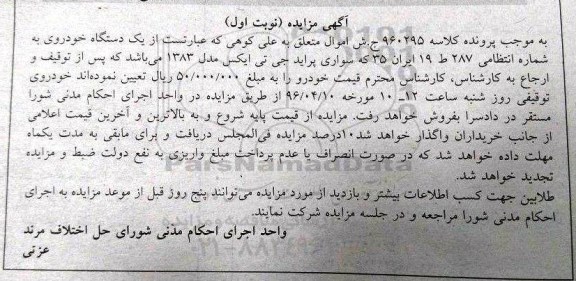 آگهی مزایده (نوبت اول)
به موجب پرونده کلاسه ۹۶۰۲۹۵ ج.ش اموال متعلق به علی کوهی که عبارتست از یک دستگاه خودروی به
شماره انتظامی ۲۸۷ ط ۱۹ ایران ۳۵ که سواری پراید جی تی ایکس مدل ۱۳۸۳ می‌باشد که پس از توقیف و
ارجاع به کارشناس، کارشناس محترم قیمت خودرو را به مبلغ ۵۰/۰۰۰/۰۰۰ ریال تعیین نموده‌اند خودروی
توقیفی روز شنبه ساعت ۱۲ــ ۱۰ مورخه ۹۶/۰۴/۱۰ از طریق مزایده در واحد اجرای احکام مدنی شورا
مستقر در دادسرا بفروش خواهد رفت. مزایده از قیمت پایه شروع و به بالاترین و آخرین قیمت اعلامی
از جانب خریداران واگذار خواهد شد ۱۰درصد مزایده فی‌المجلس دریافت و برای مابقی به مدت یکماه
مهلت داده خواهد شد که در صورت انصراف یا عدم پرداخت مبلغ واریزی به نفع دولت ضبط و مزایده
تجدید خواهد شد.
طلابین جهت کسب اطلاعات بیشتر و بازدید از مورد مزایده می‌توانند پنج روز قبل از موعد مزایده به اجرای
احکام مدنی شورا مراجعه و در جلسه مزایده شرکت نمایند.
واحد اجرای احکام مدنی شورای حل اختلاف مرند
عزتی
ParsNamadData